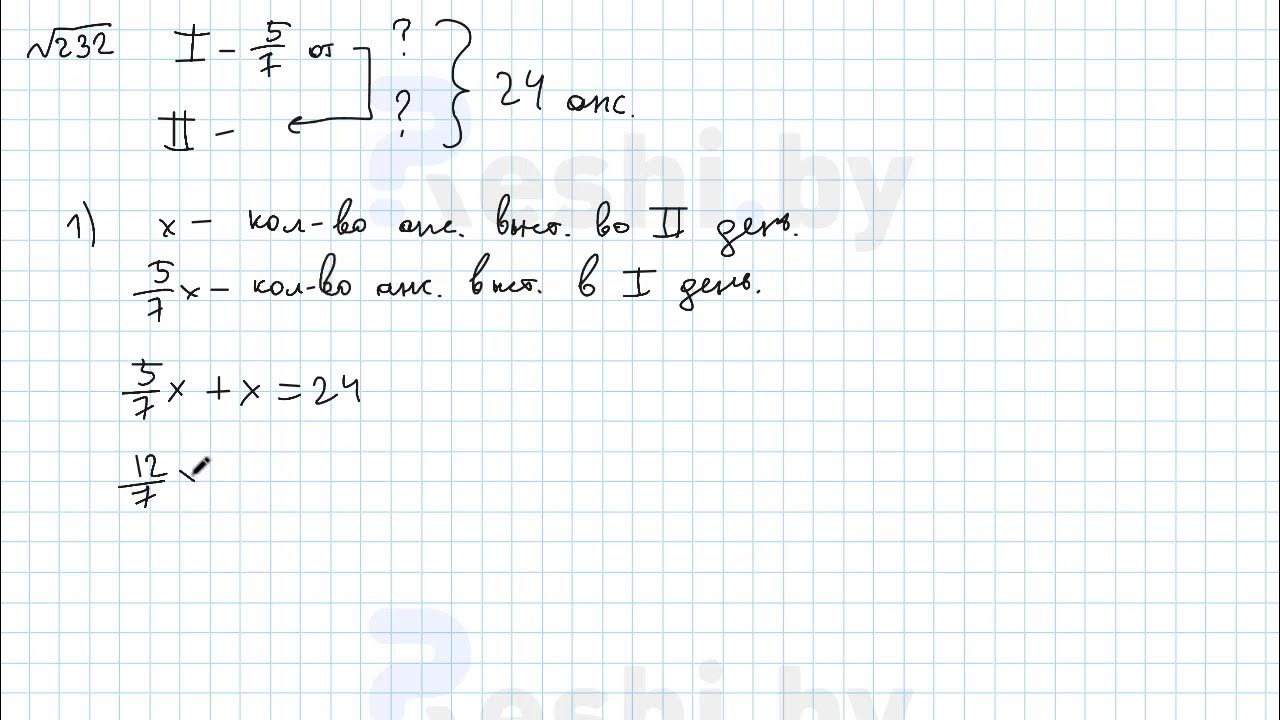 √232 I - 5/7 от ?
II - ? } 24 анс.
1) x - кол-во анс. выст. во II день.
5/7 x - кол-во анс. выст. в I день.
5/7 x + x = 24
12/7
Reshi.by
eshi.by